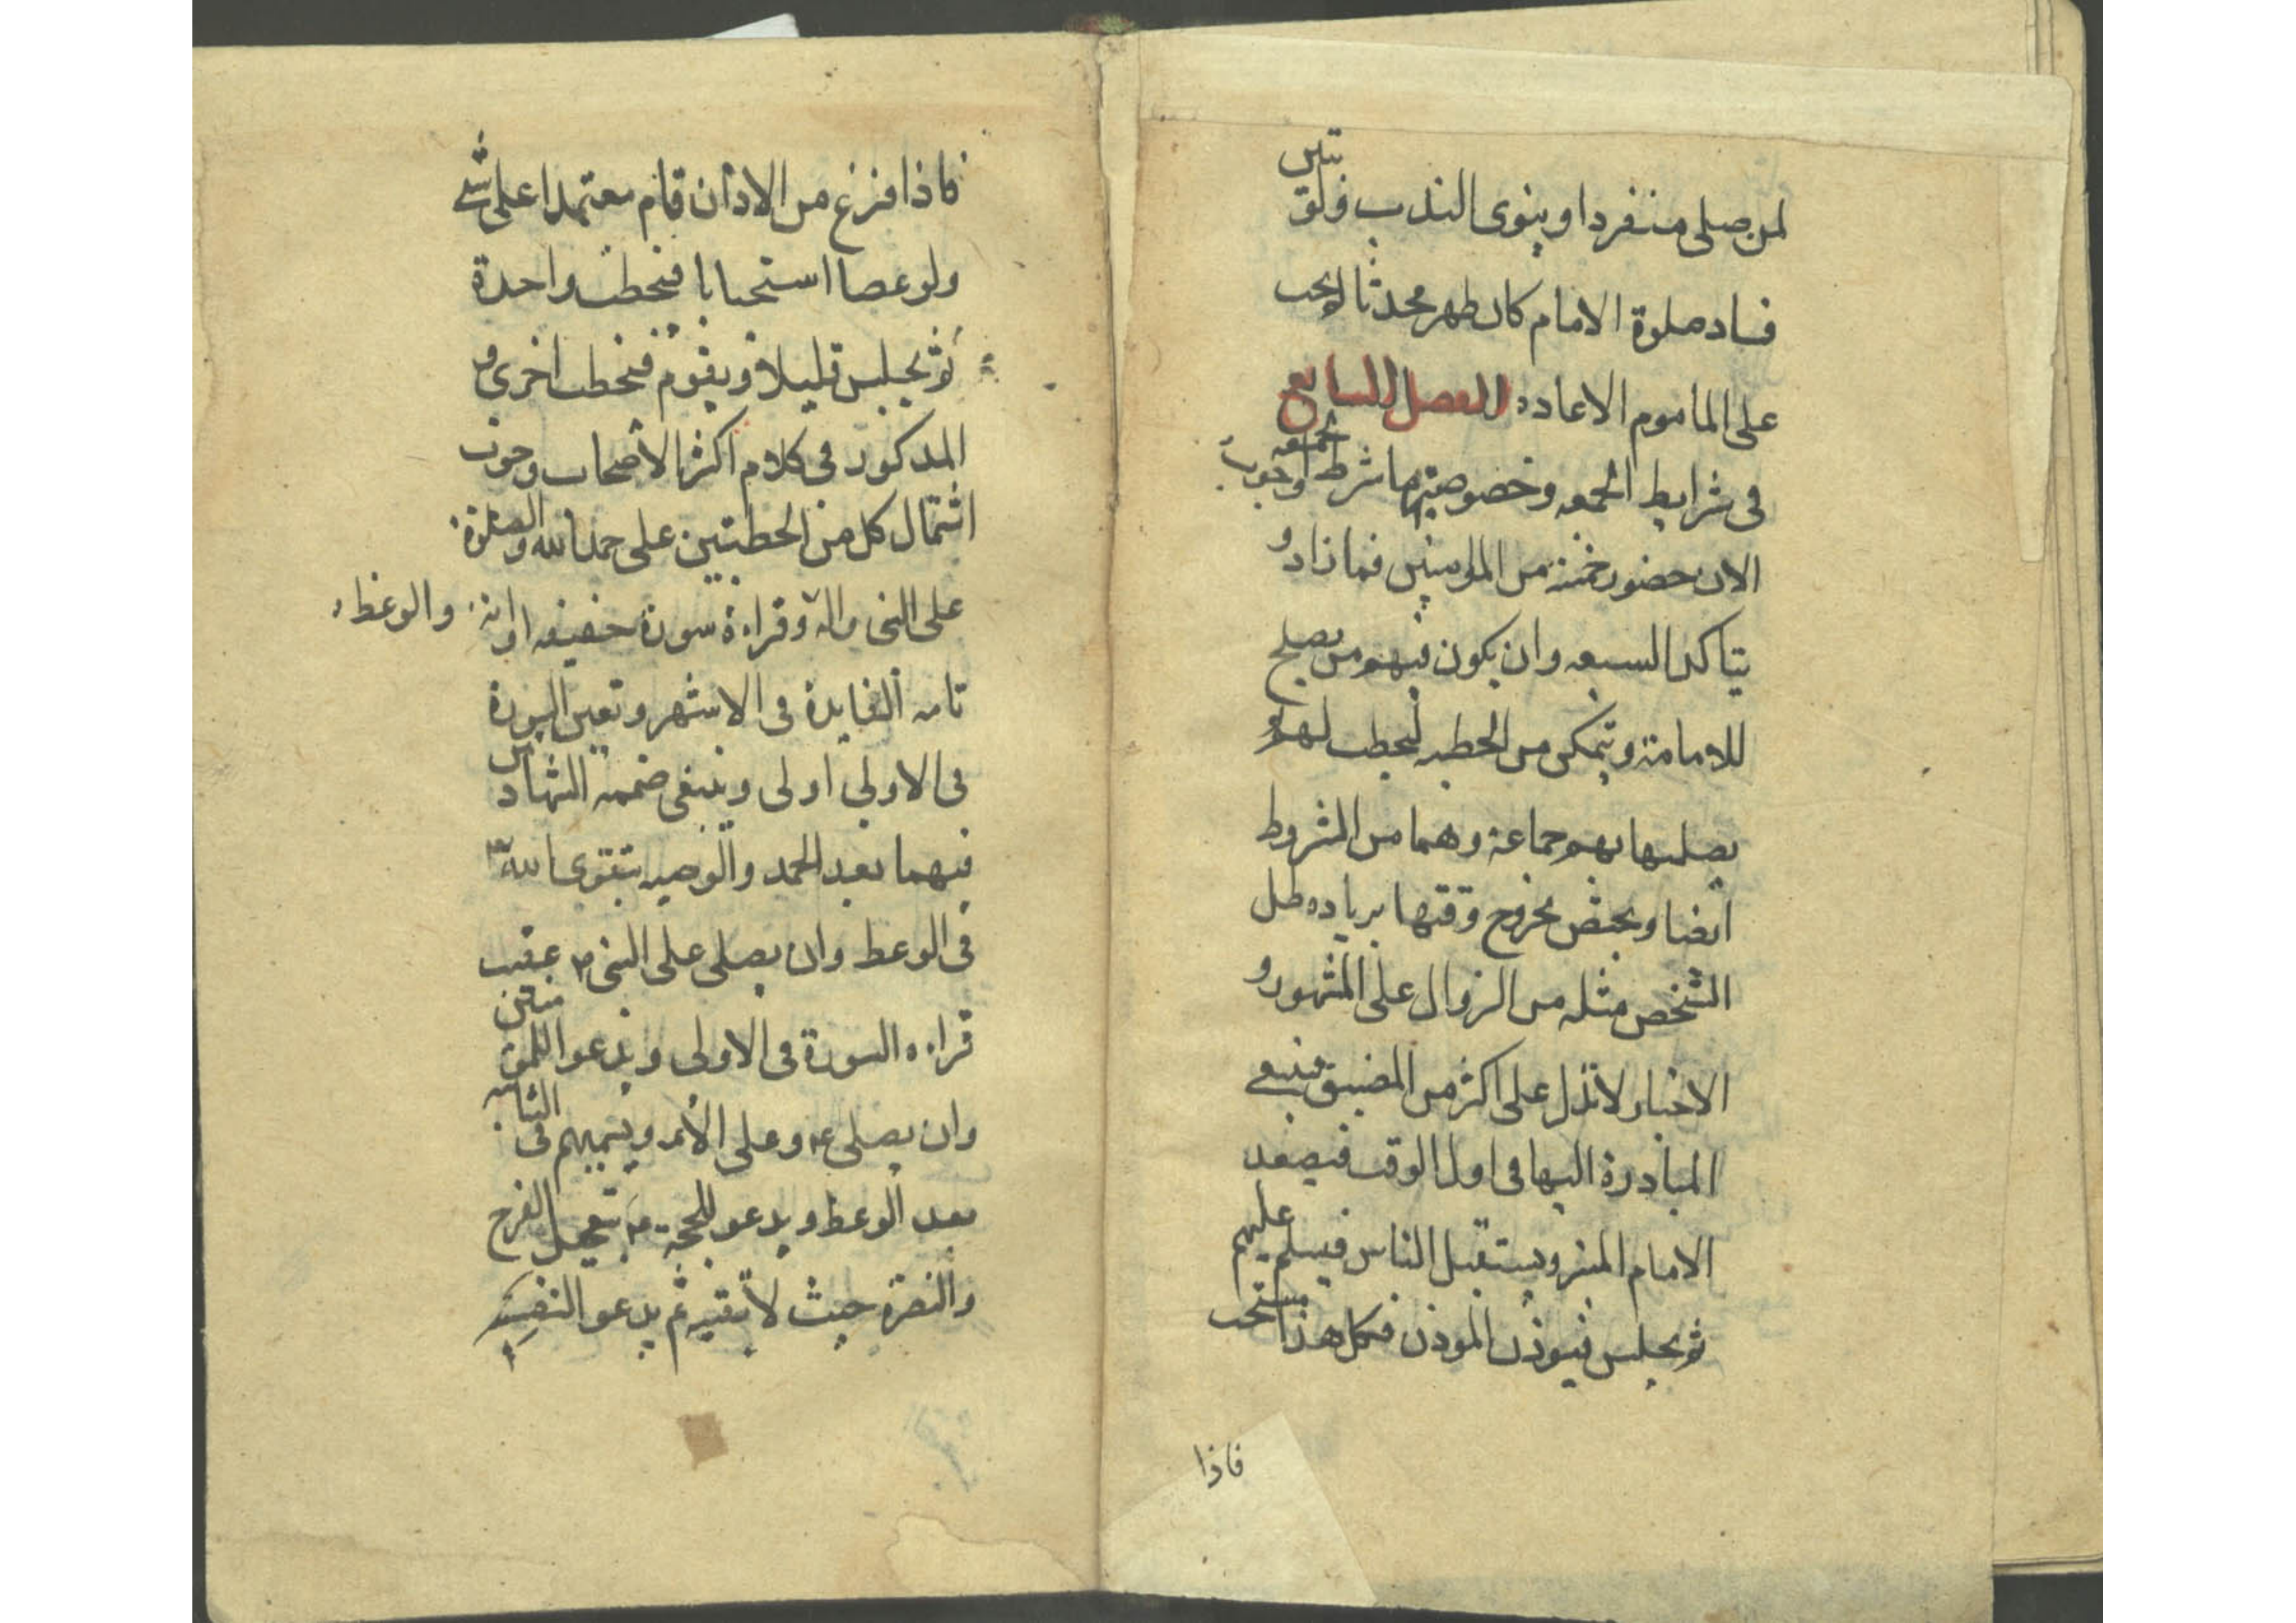 لمن صلى منفردا وينوى الندب ولو تبين
فساد صلوة الامام كان طهر محدثا لا يجب
على الماموم الاعاده الفصل السابع
فى شرايط الجمعه وخصوصيتها شرط وجوب الجمعه
الان حضور خمسة من المومنين فما زاد و
يتاكد السبعه وان يكون فيهم من يصلح
للامامة ويتمكن من الخطبه ليخطب لهم و
يصليها بهم جماعة وهما من الشروط
ايضا ويختص بخروج وقتها بزياده ظل
الشخص مثله من الزوال على المشهور و
الاخبار لا تدل على اكثر من المضيق فينبغى
المبادرة اليها فى اول الوقت فيصعد
الامام المنبر ويستقبل الناس فيسلم عليهم
ثم يجلس فيوذن الموذن فكل هذا مستحب
فاذا
فاذا فرغ من الاذان قام معتمدا على شئ
ولو عصا استحبابا فيخطب واحدة
ثم يجلس قليلا ويقوم فيخطب اخرى و
المذكور فى كلام اكثر الاصحاب وجوب
اشتمال كل من الخطبتين على حمد الله والصلوة
على النبى واله وقراءة سورة خفيفه او اية والوعظ
تامه الفايدة فى الاشهر وتعين السورة
فى الاولى اولى وينبغى ضميمة الشهادتين
فيهما بعد الحمد والوصيه بتقوى الله
فى الوعظ وان يصلى على النبى ص عقيب
قراءه السورة فى الاولى ويدعو للمومنين
وان يصلى ع وعلى الائمه ويسميهم فى الثانيه
بعد الوعظ ويدعو للحجة ع بتعجيل الفرج
والنصرة حيث لا تقيه ثم يدعو لنفسه